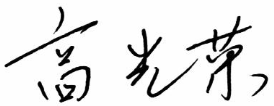 高光荣